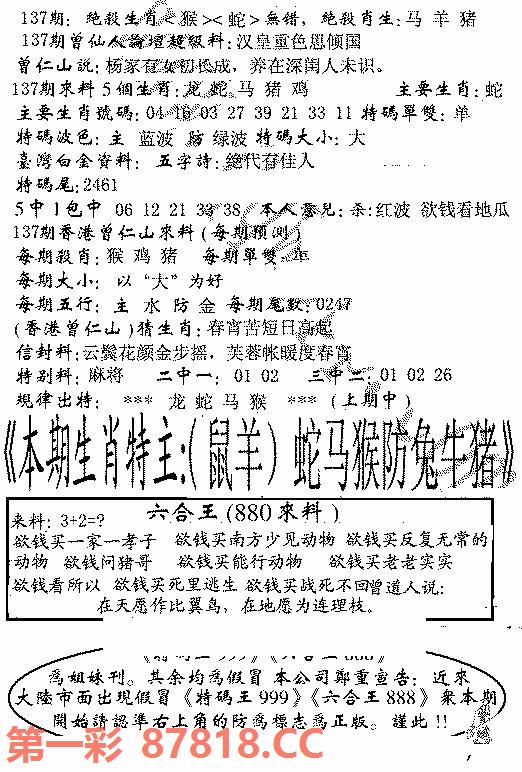 137期: 絶殺生肖<猴><蛇>無错, 絶殺肖生:马 羊 猪
137期曾仙人論壇超級料:汉皇重色思倾国
曾仁山説:杨家有女初长成, 养在深闺人未识。
137期來料 5個生肖:龙 蛇 马 猪 鸡 主要生肖:蛇
主要生肖號碼: 04 16 03 27 39 21 33 11 特碼單雙: 单
特碼波色: 主 蓝波 防 绿波 特碼大小: 大
臺灣白金資料: 五字詩:絶代有佳人
特碼尾:2461
5中1包中 06 12 21 33 38 本人意見:杀:红波 欲钱看地瓜
137期香港曾仁山來料(每期預測)
每期殺肖:猴 鸡 猪 每期單雙: 单
每期大小: 以 “大” 为好
每期五行: 主 水 防 金 每期尾数:0247
(香港曾仁山)猜生肖:春宵苦短日高起
信封料:云鬓花颜金步摇, 芙蓉帐暖度春宵
特别料:麻将 二中一: 01 02 三中二: 01 02 26
規律出特: *** 龙 蛇 马 猴 *** (上期中)
《本期生肖特主:(鼠羊) 蛇马猴防兔牛猪》
六合王(880來料)
来料: 3+2=?
欲钱买一家一孝子 欲钱买南方少见动物 欲钱买反复无常的
动物 欲钱问猪哥 欲钱买能行动物 欲钱买老老实实
欲钱看所以 欲钱买死里逃生 欲钱买战死不回曾道人说:
在天愿作比翼鸟, 在地愿为连理枝。
爲姐妹刊。其余均爲假冒 本公司鄭重宣告: 近來
大陸市面出現假冒《特碼王999》《六合王888》衆本期
開始請認準右上角的防爲標志爲正版。謹此!!
第一彩 87818.CC